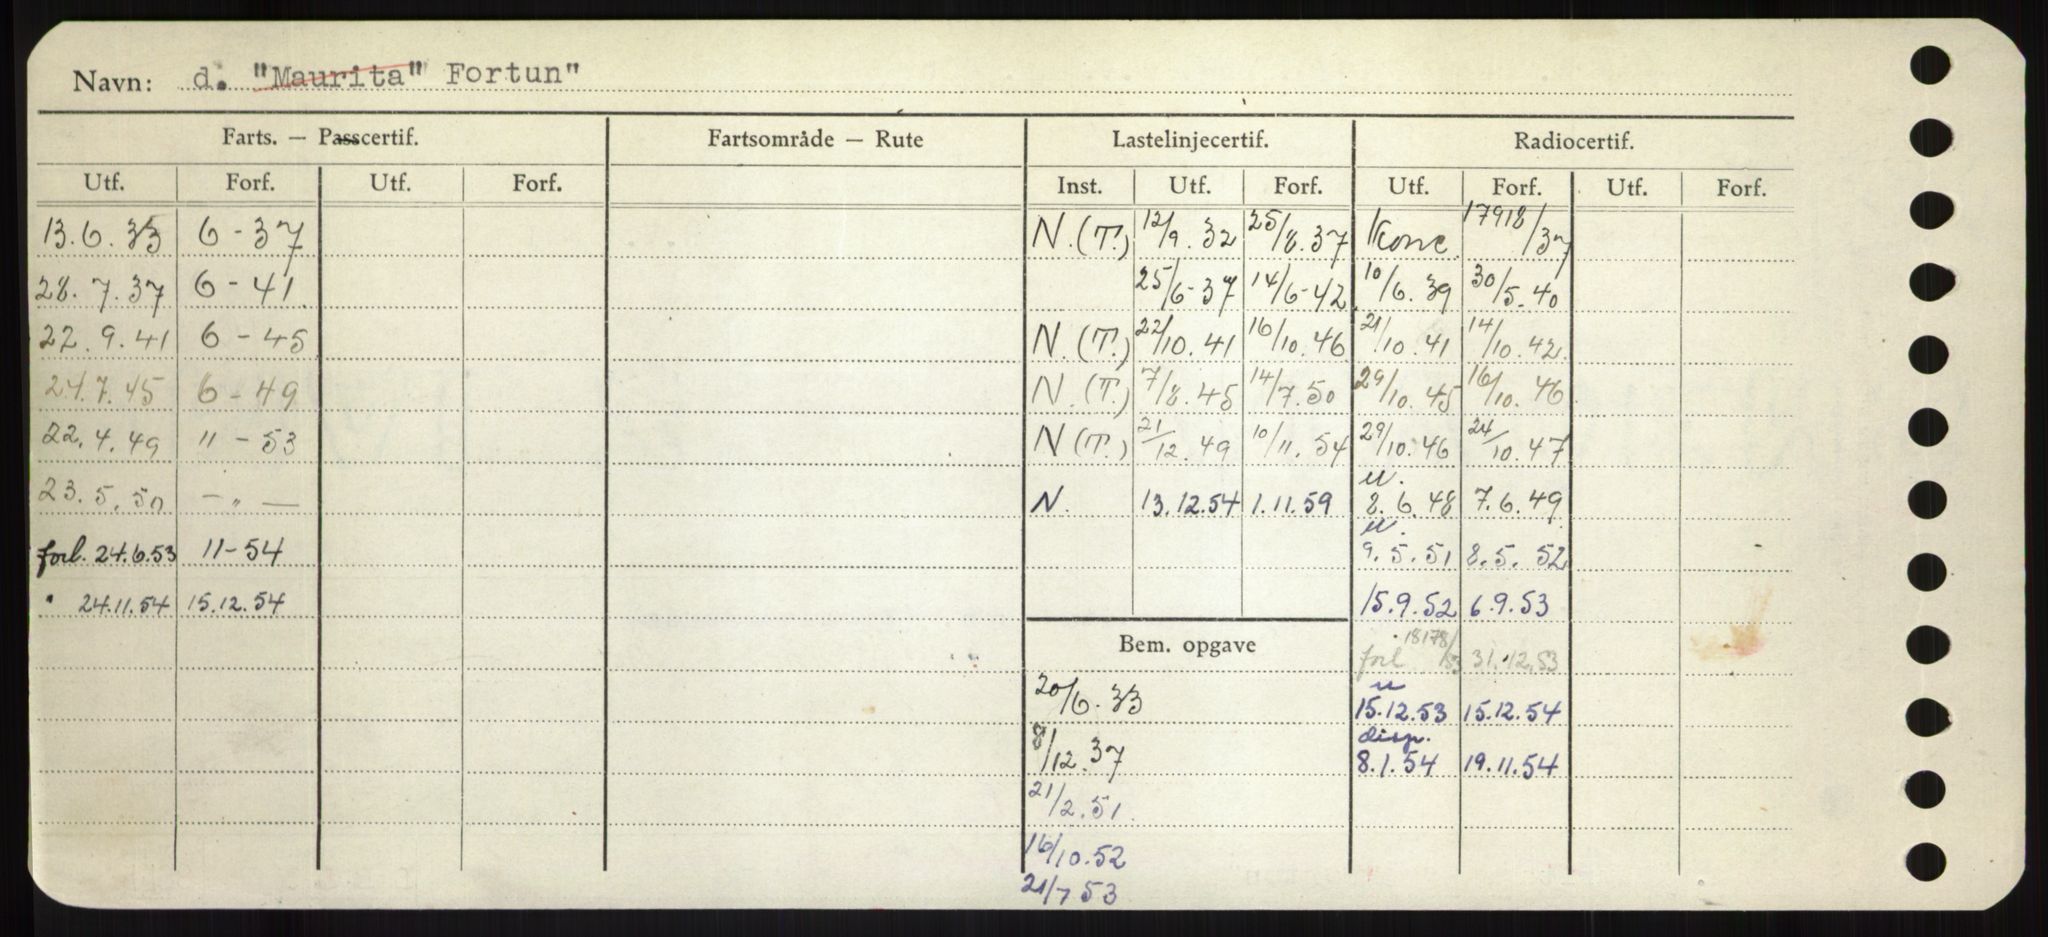 Navn: d. "Maurita" Fortun"
Farts. — Passcertif. Fartsområde — Rute Lastelinjecertif. Radiocertif.
Utf. Forf. Utf. Forf. Inst. Utf. Forf. Utf. Forf. Utf. Forf.
13.6.33 6-37 N.(T.) 12/9.32 25/8.37 Konc. 17918/37
28.7.37 6-41 25/6-37 14/6-42 10/6.39 30/5.40
22.9.41 6-45 N.(T.) 22/10.41 16/10.46 21/10.41 14/10.42
24.7.45 6-49 N.(T.) 7/8.45 14/7.50 29/10.45 16/10.46
22.4.49 11-53 N(T.) 21/12.49 10/11.54 29/10.46 24/10.47
23.5.50 -„- N. 13.12.54 1.11.59 u. 8.6.48 7.6.49
forl. 24.6.53 11-54 u. 9.5.51 8.5.52
" 24.11.54 15.12.54 15.9.52 6.9.53
Bem. opgave forl 18178/53 31.12.53
20/6.33 u 15.12.53 15.12.54
8/12.37 disp. 8.1.54 19.11.54
21/2.51.
16/10.52
21/7 53